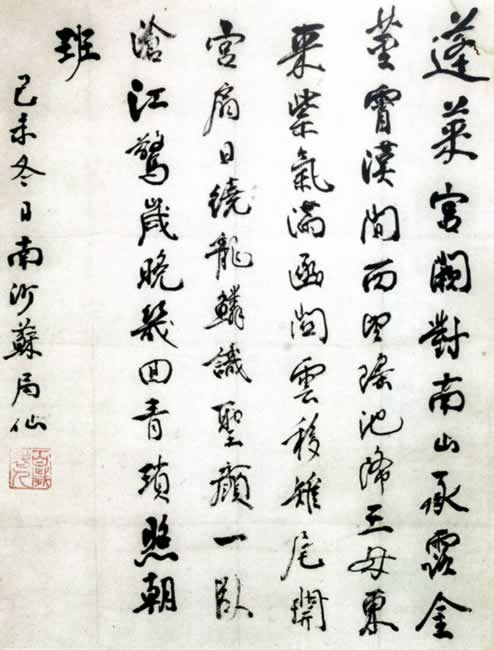 蓬萊宮闕對南山承露金
莖霄漢間西望瑤池降王母東
來紫氣滿函關雲移雉尾開
宮扇日繞龍鱗識聖顏一臥
滄江驚歲晚幾回青瑣照朝
班
己未冬日南沙蘇局仙